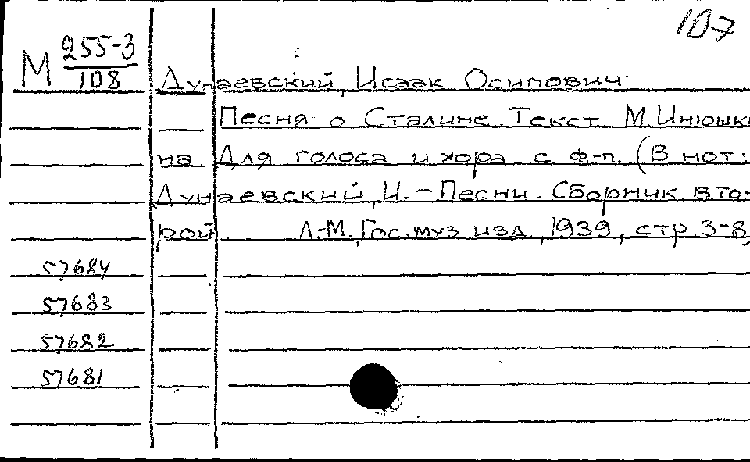 107
М 255-3
108
Дунаевский, Исаак Осипович
Песня о Сталине. Текст М. Инюшки
на. Для голоса и хора с ф-п. (В нот:
Дунаевский, И. - Песни. Сборник вто-
рой. Л.-М., Гос. муз. изд., 1939, стр. 3-8,
57684
57683
57682
57681